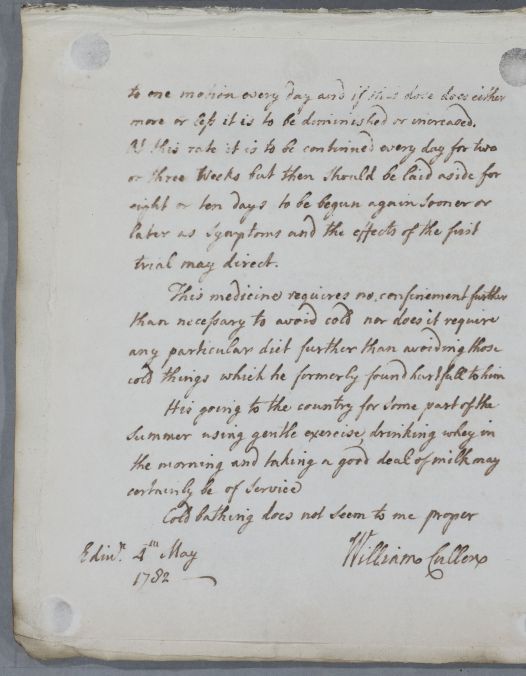 to one motion every day and if this dose does either
more or less it is to be diminished or increased.
At this rate it is to be continued every day for two
or three weeks but then should be laid aside for
eight or ten days to be begun again sooner or
later as symptoms and the effects of the first
trial may direct.
This medicine requires no confinement further
than necessary to avoid cold nor does it require
any particular diet further than avoiding those
cold things which he formerly found hurtfull to him
His going to the country for some part of the
Summer using gentle exercise drinking whey in
the morning and taking a good deal of milk may
certainly be of service
Cold bathing does not seem to me proper
Edinr. 4th May
William Cullen
1782